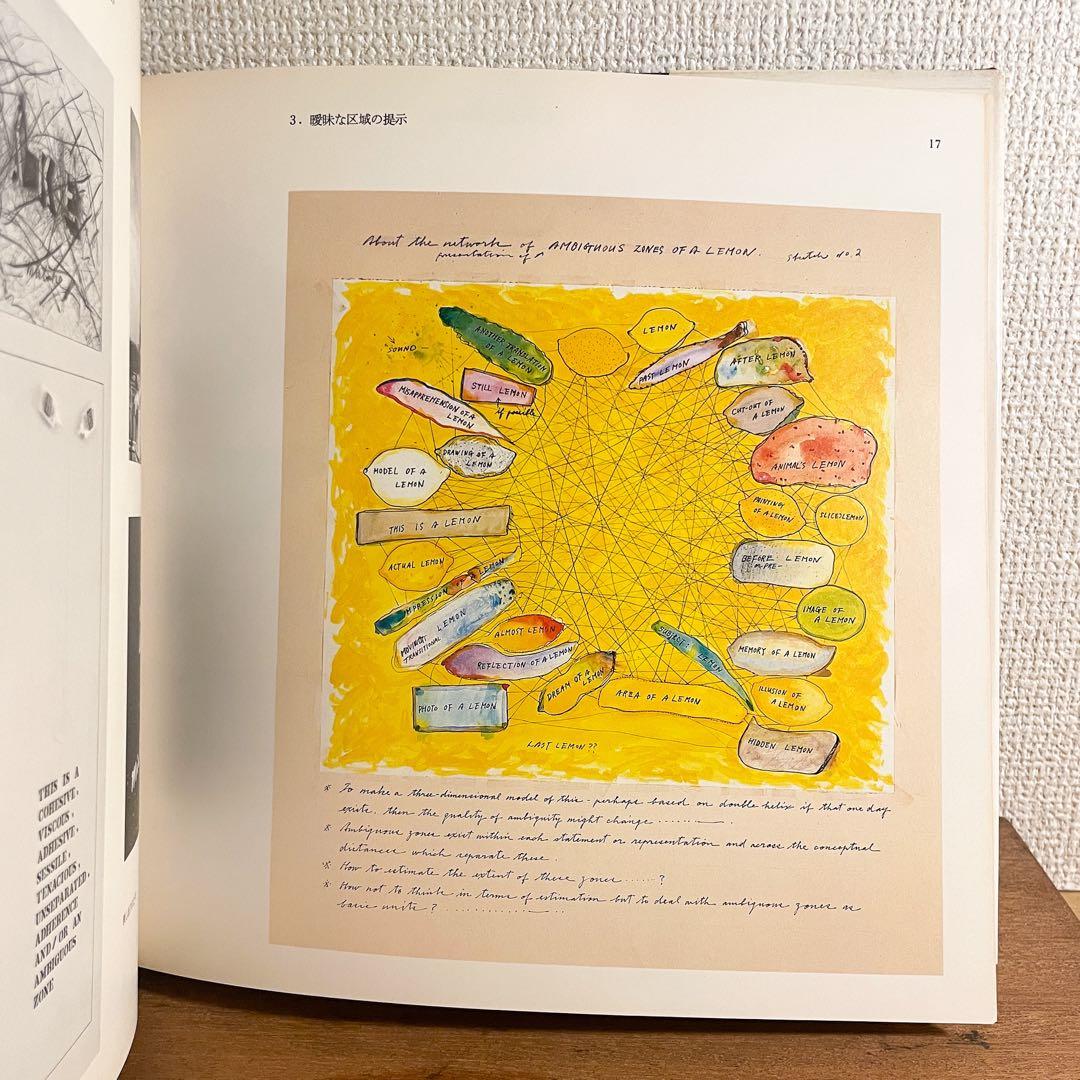 THIS IS A
COHESIVE,
VISCOUS,
ADHESIVE,
SESSILE,
TENACIOUS,
UNSEPARATED,
ADHERENCE
AND/OR AN
AMBIGUOUS
ZONE
3. 曖昧な区域の提示
17
About the network of AMBIGUOUS ZONES OF A LEMON. sketch no. 2
presentation of
SOUND
ANOTHER TRANSLATION
OF A LEMON
LEMON
PAST LEMON
AFTER LEMON
STILL LEMON
if possible
MISAPPREHENSION OF A
LEMON
CUT-OUT OF
A LEMON
DRAWING OF A
LEMON
ANIMAL'S LEMON
MODEL OF A
LEMON
THIS IS A LEMON
PAINTING
OF A LEMON
SLICED LEMON
ACTUAL LEMON
BEFORE LEMON
PRE-
IMPRESSION OF A LEMON
IMAGE OF
A LEMON
MOVING LEMON
TRANSITIONAL
ALMOST LEMON
SUBJECT LEMON
MEMORY OF A LEMON
REFLECTION OF A LEMON
DREAM OF A
LEMON
AREA OF A LEMON
ILLUSION OF
A LEMON
PHOTO OF A LEMON
HIDDEN LEMON
LAST LEMON??
※ To make a three-dimensional model of this - perhaps based on double helix if that one day
exists, then the quality of ambiguity might change ..........
※ Ambiguous zones exist within each statement or representation and across the conceptual
distances which separate these.
※ How to estimate the extent of these zones ......?
※ How not to think in terms of estimation but to deal with ambiguous zones as
basic units? ..............